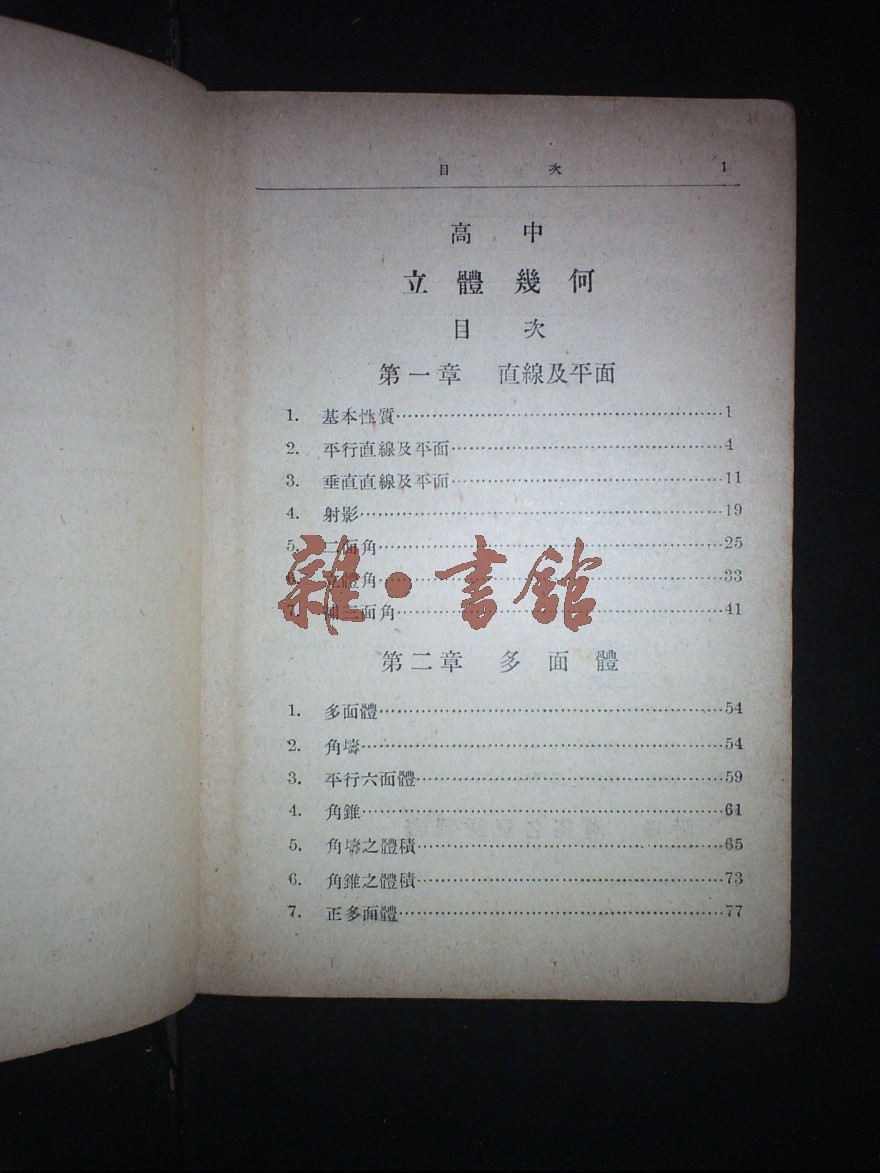 目 次 1
高 中
立 體 幾 何
目 次
第一章 直線及平面
1. 基本性質…………1
2. 平行直線及平面…………4
3. 垂直直線及平面…………11
4. 射影…………19
5. 二面角…………25
6. 立體角…………33
7. 三面角…………41
雜·書館
第二章 多 面 體
1. 多面體…………54
2. 角壔…………54
3. 平行六面體…………59
4. 角錐…………61
5. 角壔之體積…………65
6. 角錐之體積…………73
7. 正多面體…………77